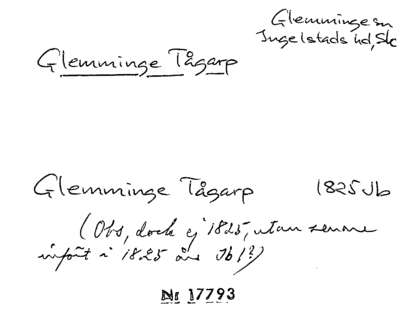 Glemminge sn
Ingelstads hd, Sk
Glemminge Tågarp
Glemminge Tågarp 1825 Jb
(Obs, dock ej 1825, utan senare
infört i 1825 års Jb (?))
Nr 17793